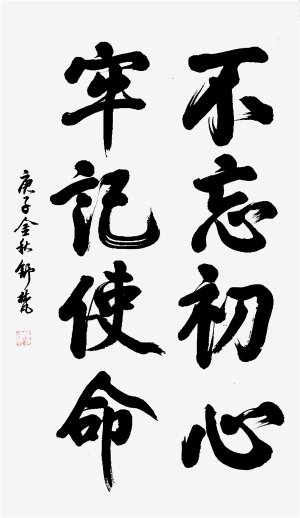 不忘初心
牢记使命
庚子金秋